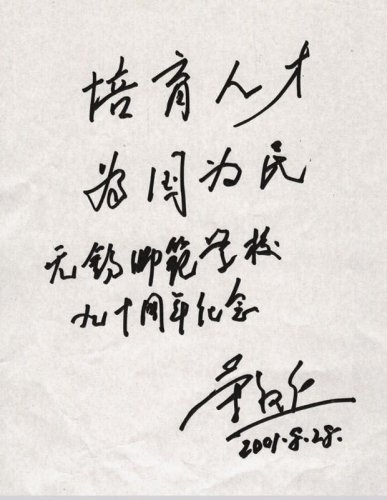 培育人才
为国为民
无锡师範学校
九十周年纪念
荣毅仁
2001.8.28.